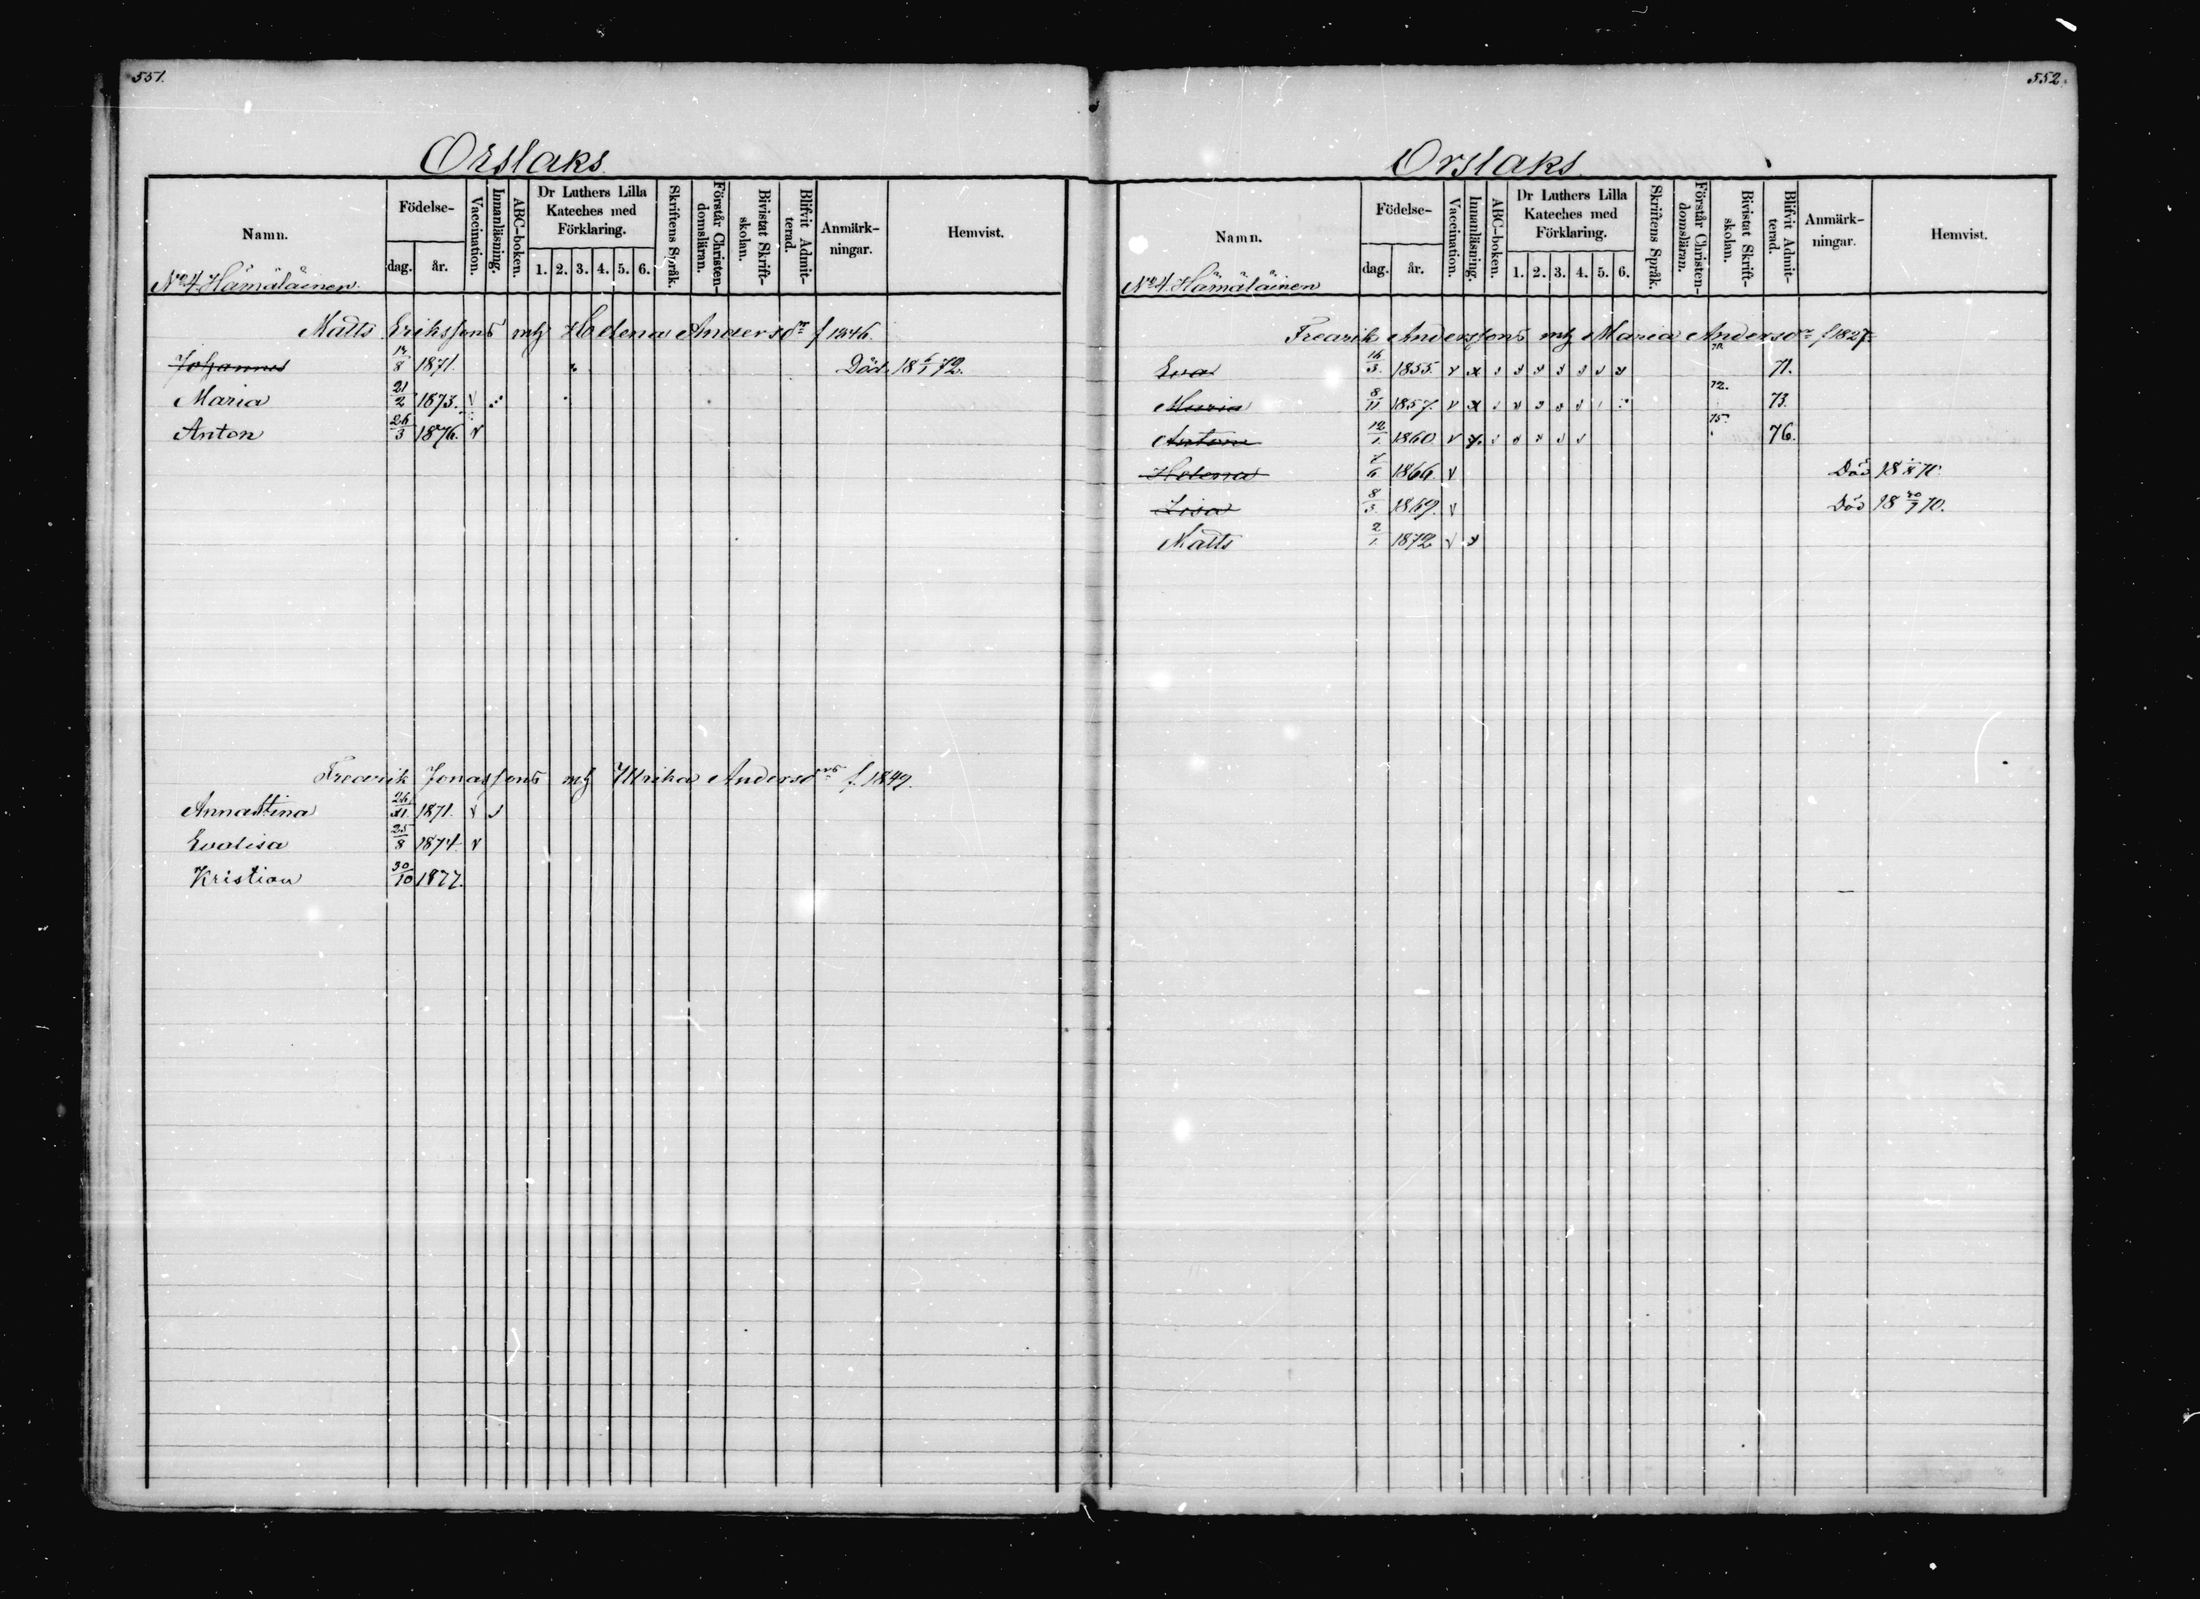 551.
Orslaks.
Namn.
Födelse-
dag. år.
Vaccination.
Innanläsning.
ABC-boken.
Dr Luthers Lilla
Kateches med
Förklaring.
1. 2. 3. 4. 5. 6.
Skriftens Språk.
Förstår Christen-
domsläran.
Bivistat Skrift-
skolan.
Blifvit Admit-
terad.
Anmärk-
ningar.
Hemvist.
No 4 Hämäläinen.
Matts Erikssons mtz Helena Andersdr f 1846.
Johannes /8 1871. Död. 18 /1 72.
Maria 21/2 1873. v
Anton 26/3 1876. v
Fredrik Jonassons mtz Ulrika Andersd f. 1849.
Annastina 26/11. 1871. v
Evalisa 25/8 1874 v
Kristian 30/10 1877.
552.
Orslaks.
Namn.
Födelse-
dag. år.
Vaccination.
Innanläsning.
ABC-boken.
Dr Luthers Lilla
Kateches med
Förklaring.
1. 2. 3. 4. 5. 6.
Skriftens Språk.
Förstår Christen-
domsläran.
Bivistat Skrift-
skolan.
Blifvit Admit-
terad.
Anmärk-
ningar.
Hemvist.
No 4. Hämäläinen
Fredrik Anderssons mtz Maria Andersdr f 1827.
Eva 16/3. 1855. v x 71.
Maria 8/11 1857. v x 72. 73.
Anton 12/1 1860. v x 75. 76.
Helena /6 1866. v Död 18 70.
Lisa 8/3. 1869. v Död 18 70.
Matts 2/1 1872 v